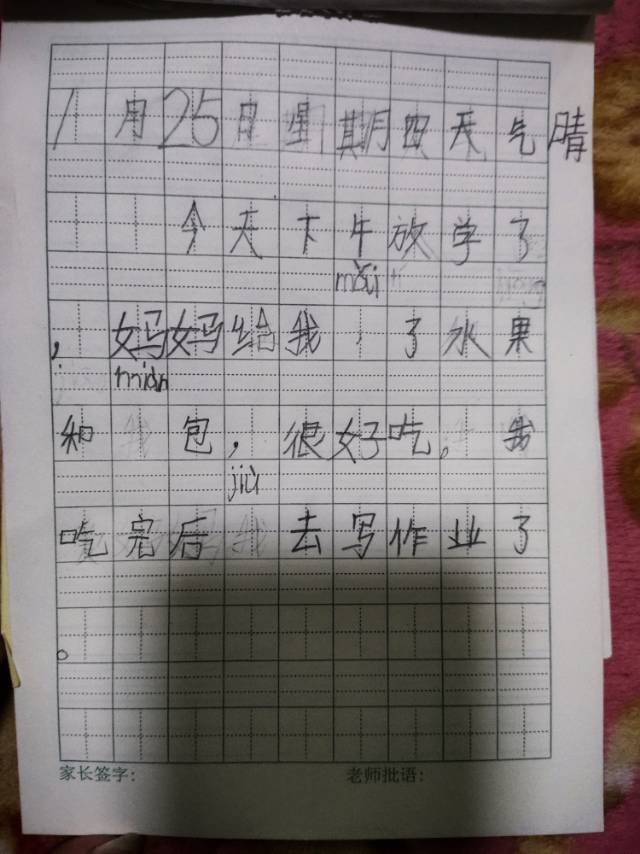 1月25日星期四天气晴
今天下午放学了
mǎi
，妈妈给我 了水果
miàn
和 包，很好吃。我
jiù
吃完后 去写作业了
。
家长签字： 老师批语：